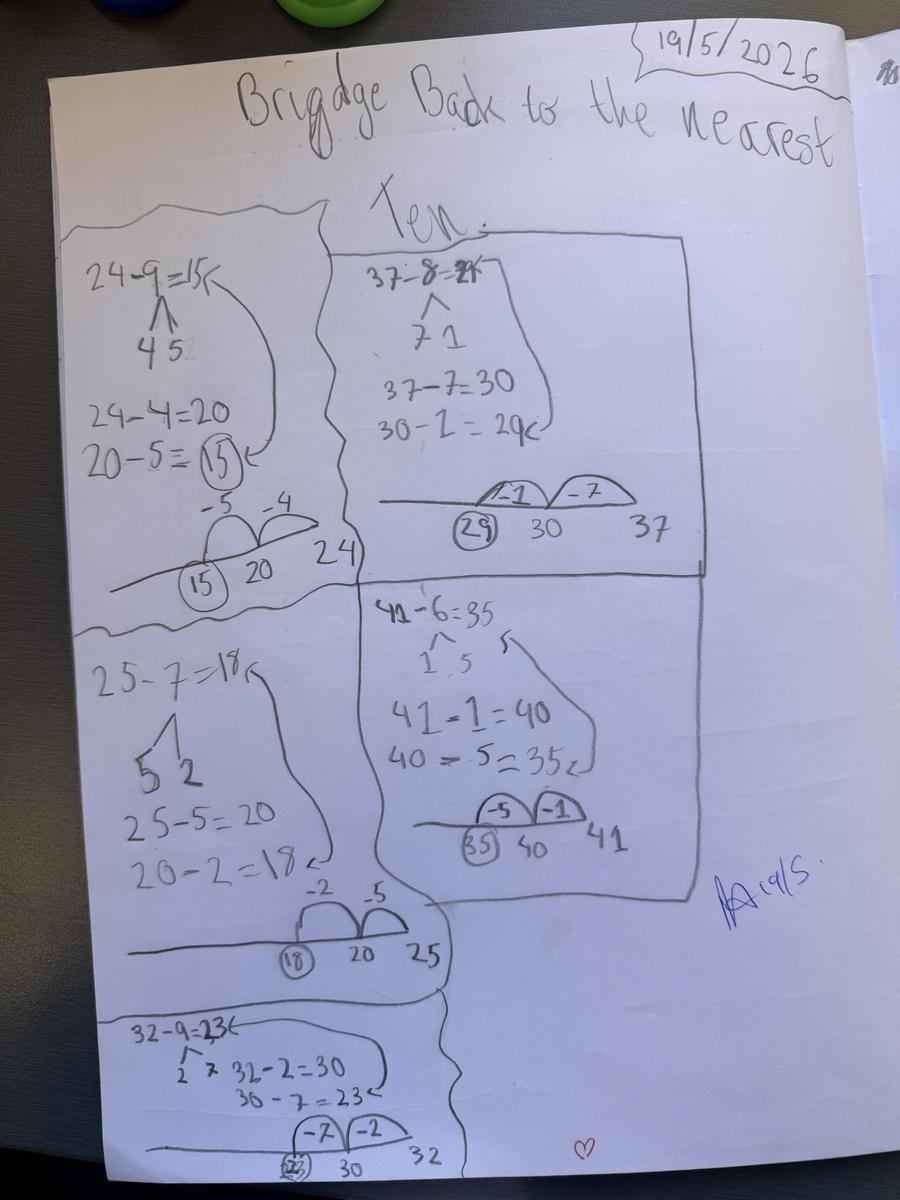 19/5/2026
Briggdge Back to the nearest
Ten.
24-9=15
4 5
24-4=20
20-5=15
-5 -4
15 20 24
37-8=29
7 1
37-7=30
30-1=29
-1 -7
29 30 37
25-7=18
5 2
25-5=20
20-2=18
-2 -5
18 20 25
41-6=35
1 5
41-1=40
40-5=35
-5 -1
35 40 41
32-9=23
2 7 32-2=30
30-7=23
-7 -2
23 30 32
19/5.